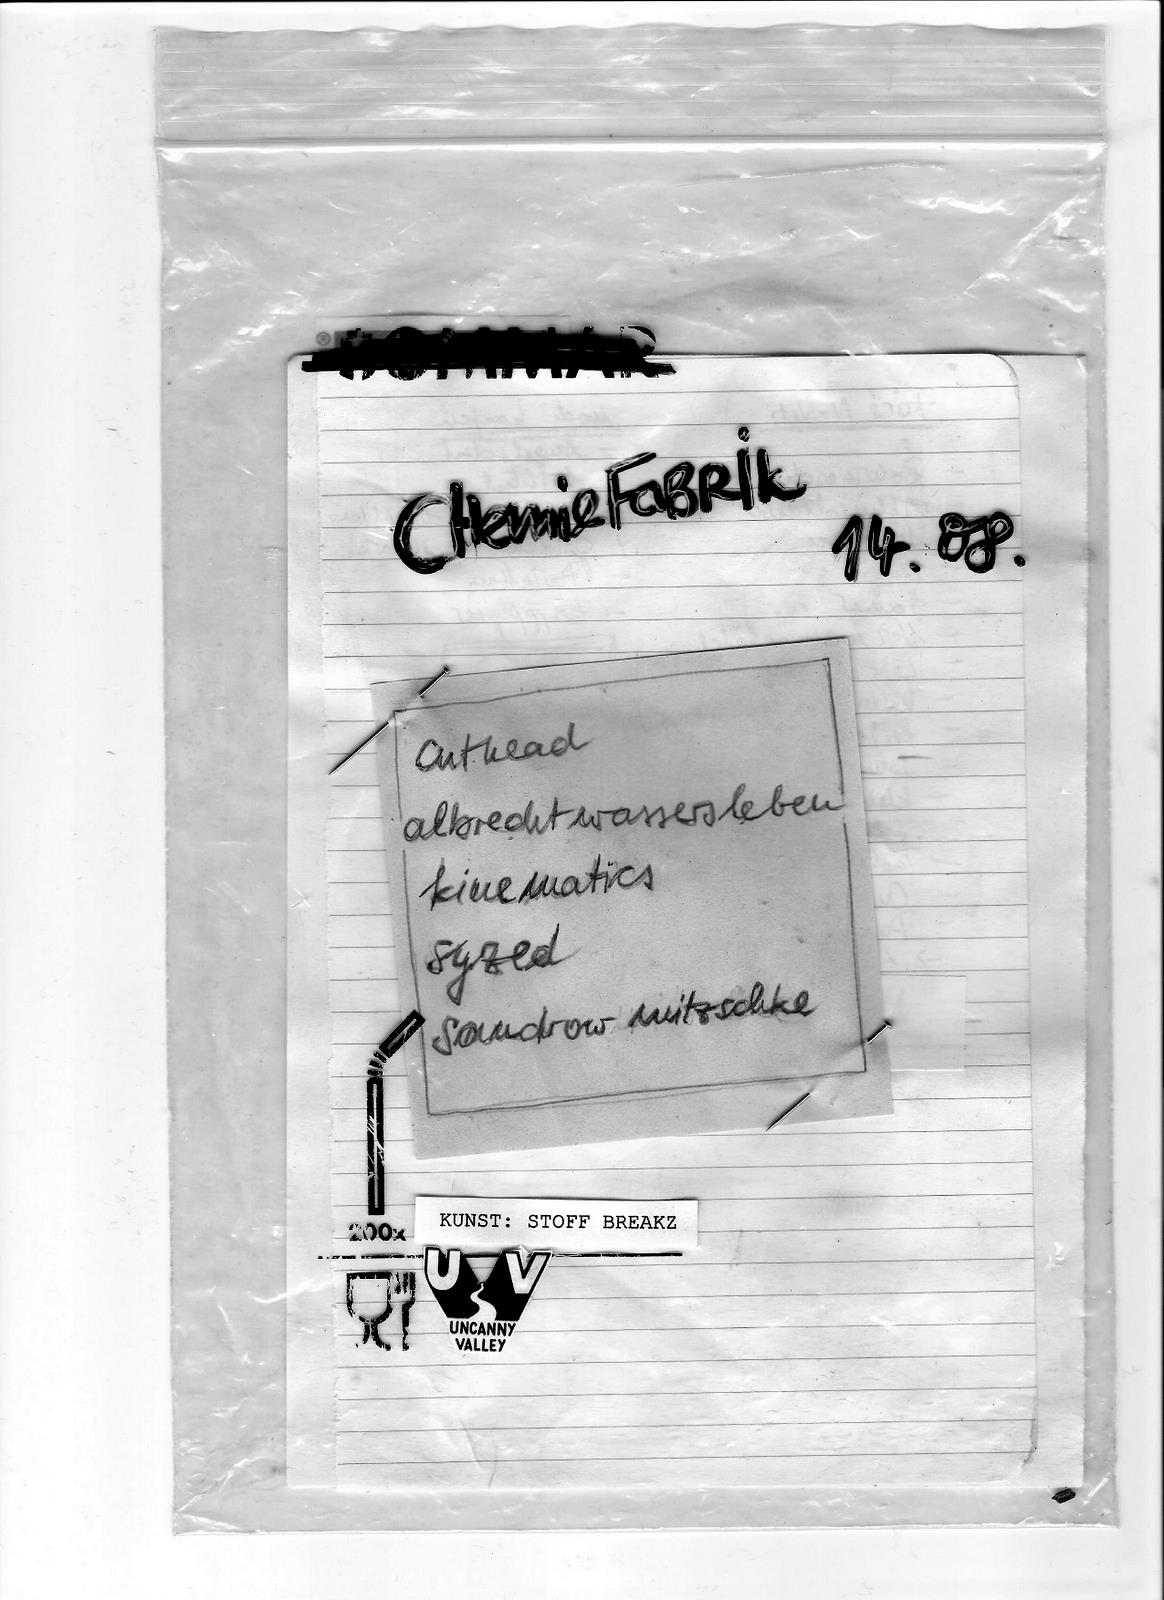 ®
ChemieFabrik
14. 08.
Cuthead
albrecht wassersleben
kinematics
syzed
sandrow mitzschke
200x
KUNST: STOFF BREAKZ
U V
UNCANNY
VALLEY